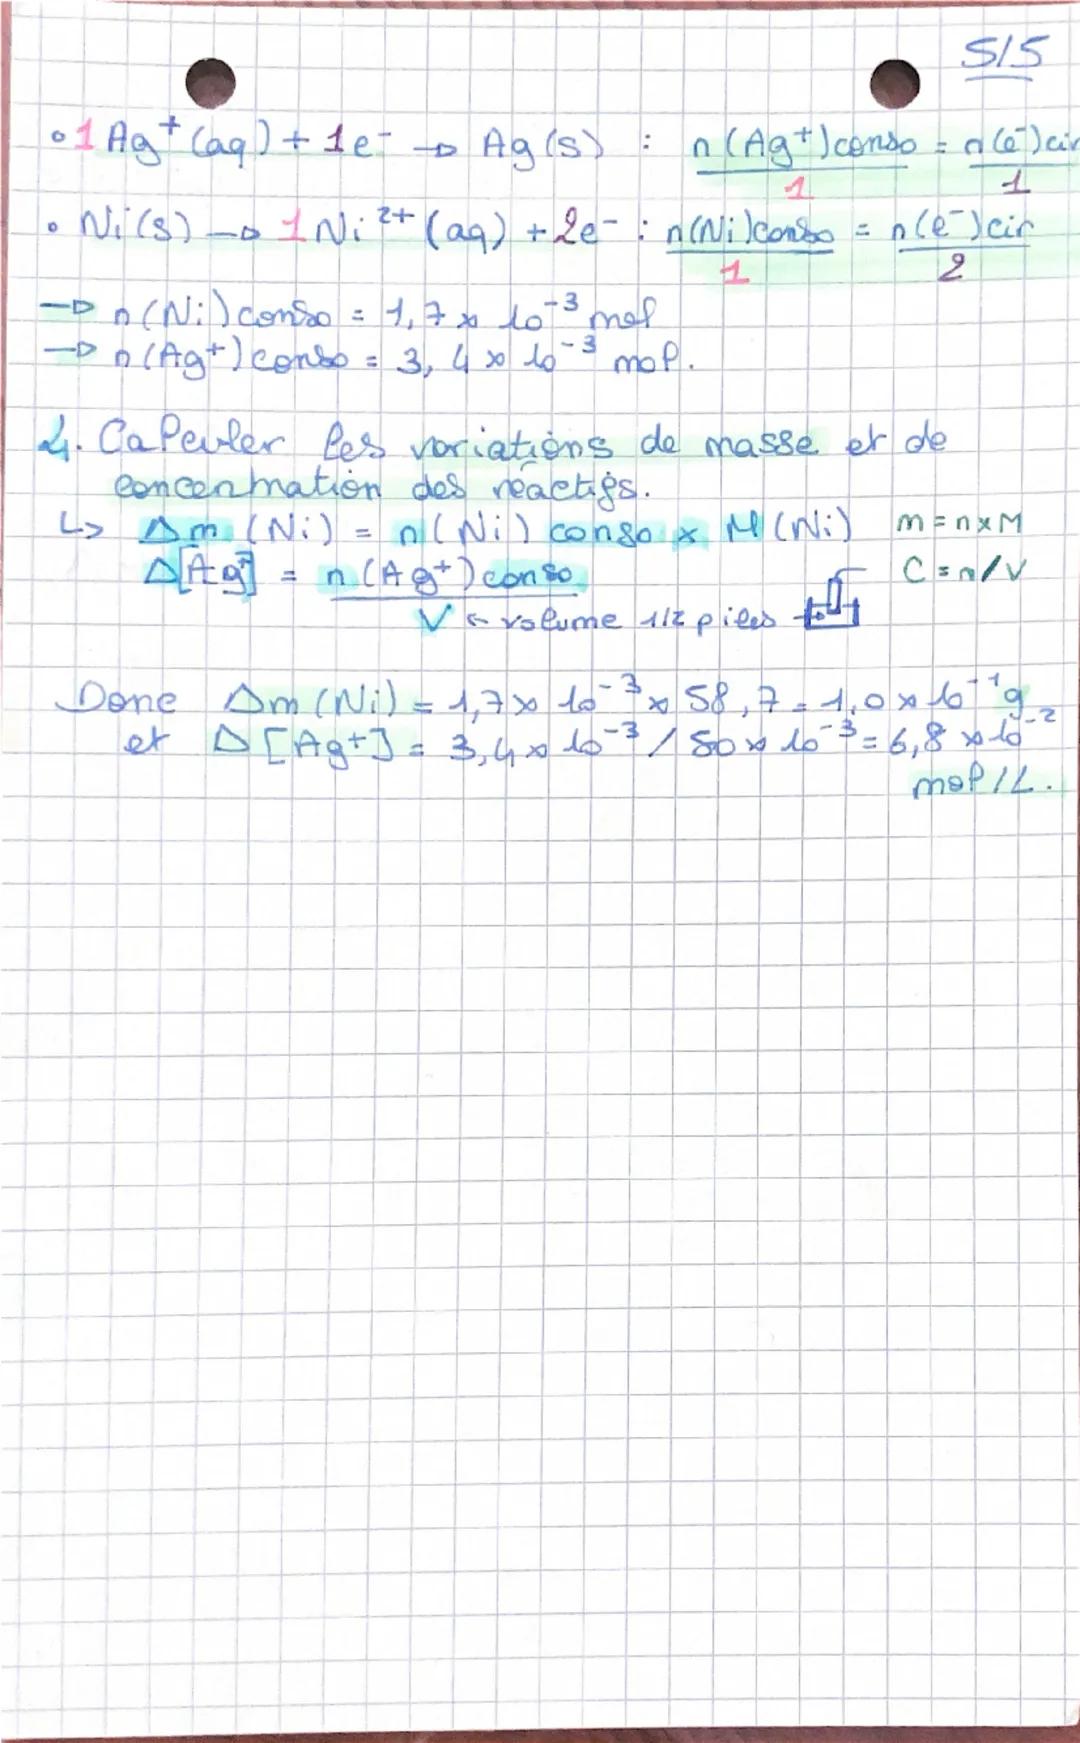 5/5
• 1 Ag⁺ (aq) + 1e⁻ → Ag (s) : n(Ag⁺)conso/1 = n(e⁻)cir/1
• Ni(s) → 1 Ni²⁺ (aq) + 2e⁻ : n(Ni)conso/1 = n(e⁻)cir/2
→ n(Ni)conso = 1,7 × 10⁻³ mol
→ n(Ag⁺)conso = 3,4 × 10⁻³ mol.
4. Calculer les variations de masse et de
concentration des réactifs.
↳ Δm (Ni) = n(Ni) conso × M(Ni) m = n×M
Δ[Ag⁺] = n(Ag⁺)conso/V C = n/V
V ← volume 1/2 piles
Donc Δm (Ni) = 1,7 × 10⁻³ × 58,7 = 1,0 × 10⁻¹ g
et Δ [Ag⁺] = 3,4 × 10⁻³ / 50 × 10⁻³ = 6,8 × 10⁻²
mol/L.